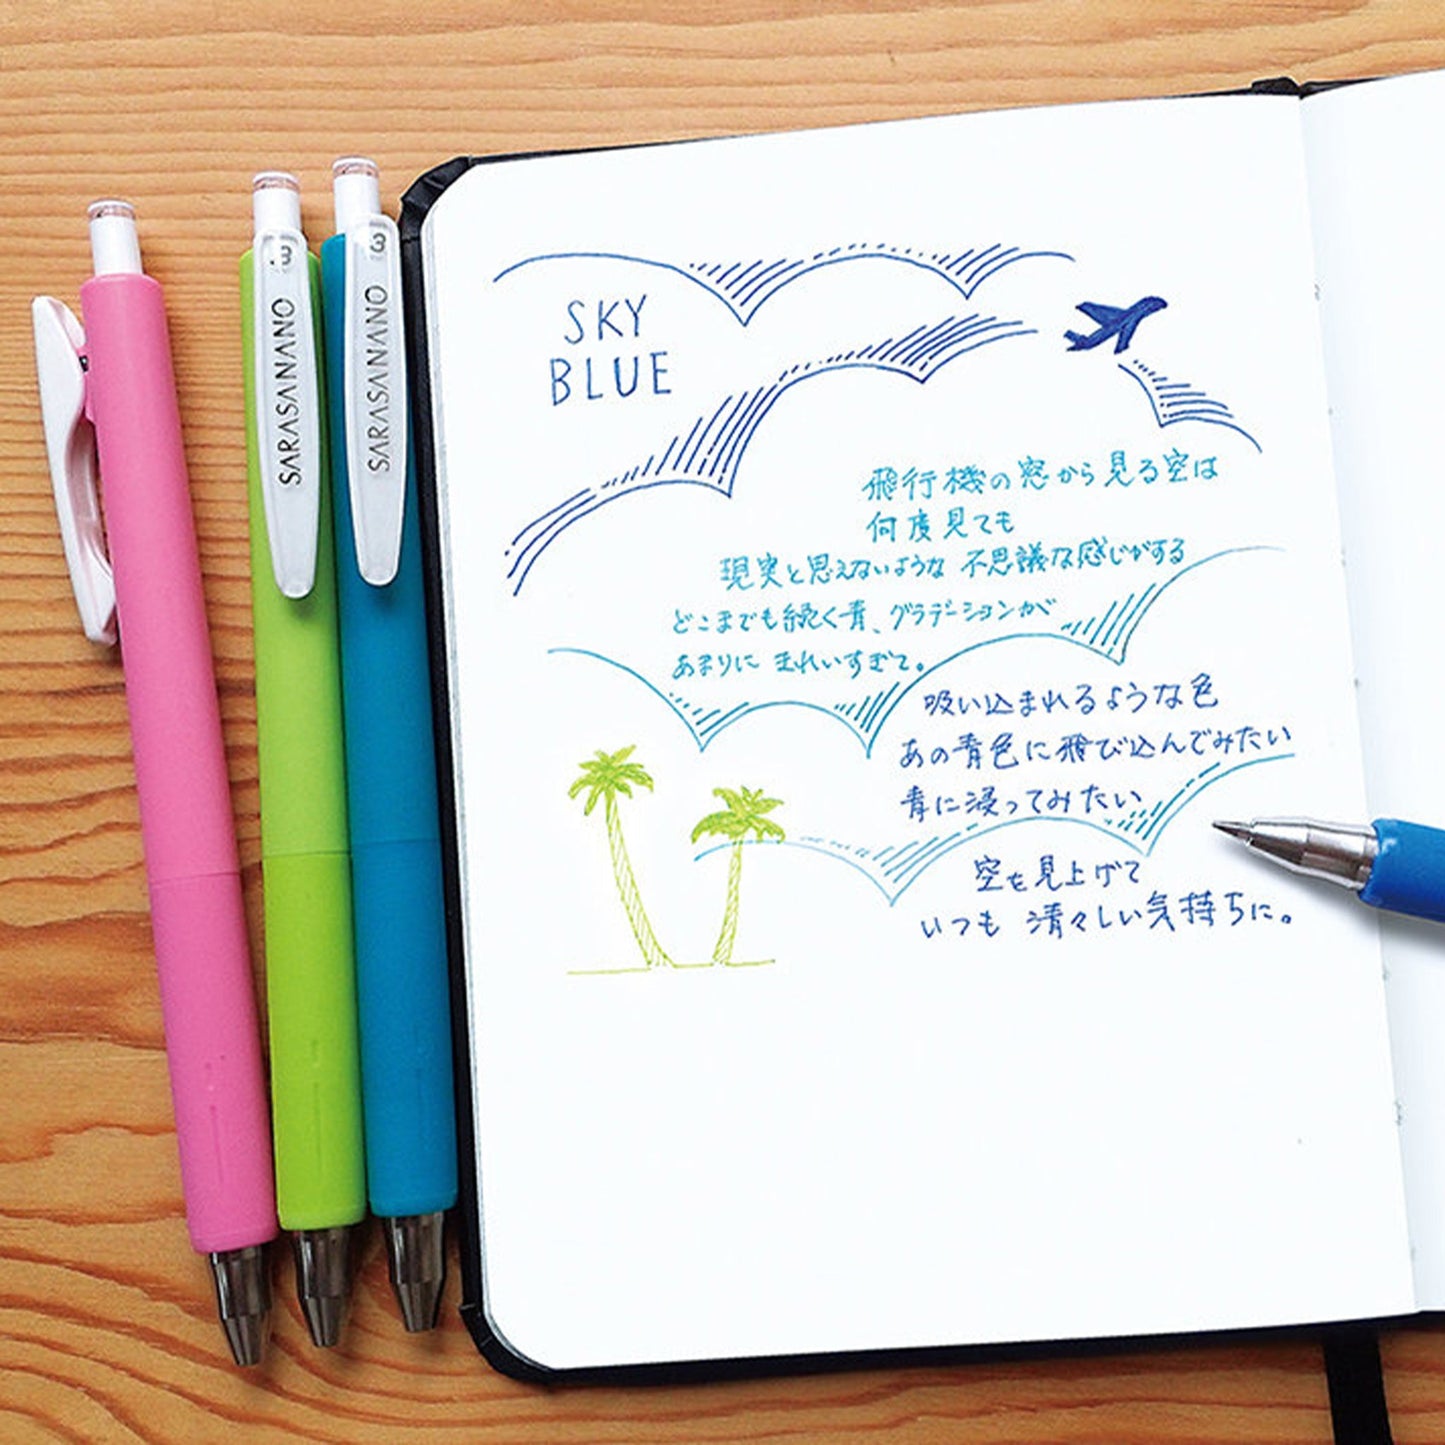 SARASANANO
3
SARASANANO
3
SKY
BLUE
飛行機の窓から見る空は
何度見ても
現実と思えないような 不思議な感じがする
どこまでも続く青、グラデーションが
あまりに きれいすぎて。
吸い込まれるような色
あの青色に飛び込んでみたい
青に浸ってみたい
空を見上げて
いつも 清々しい気持ちに。